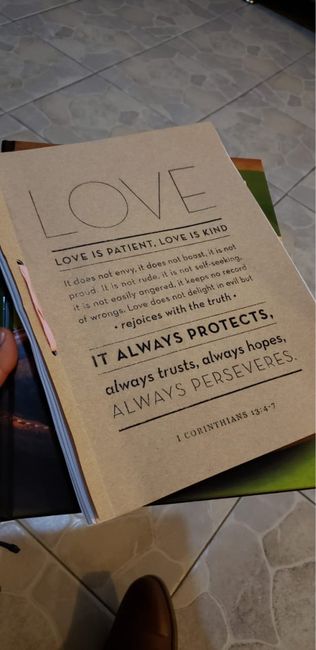 LOVE
LOVE IS PATIENT, LOVE IS KIND
It does not envy, it does not boast, it is not
proud. It is not rude, it is not self-seeking,
it is not easily angered, it keeps no record
of wrongs. Love does not delight in evil but
• rejoices with the truth •
IT ALWAYS PROTECTS,
always trusts, always hopes,
ALWAYS PERSEVERES.
1 CORINTHIANS 13:4-7